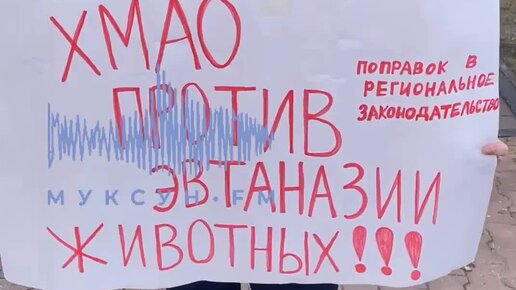 ХМАО
ПРОТИВ
ЭВТАНАЗИИ
ЖИВОТНЫХ!!!
ПОПРАВОК В
РЕГИОНАЛЬНОЕ
ЗАКОНОДАТЕЛЬСТВО
МУКСУН.FM